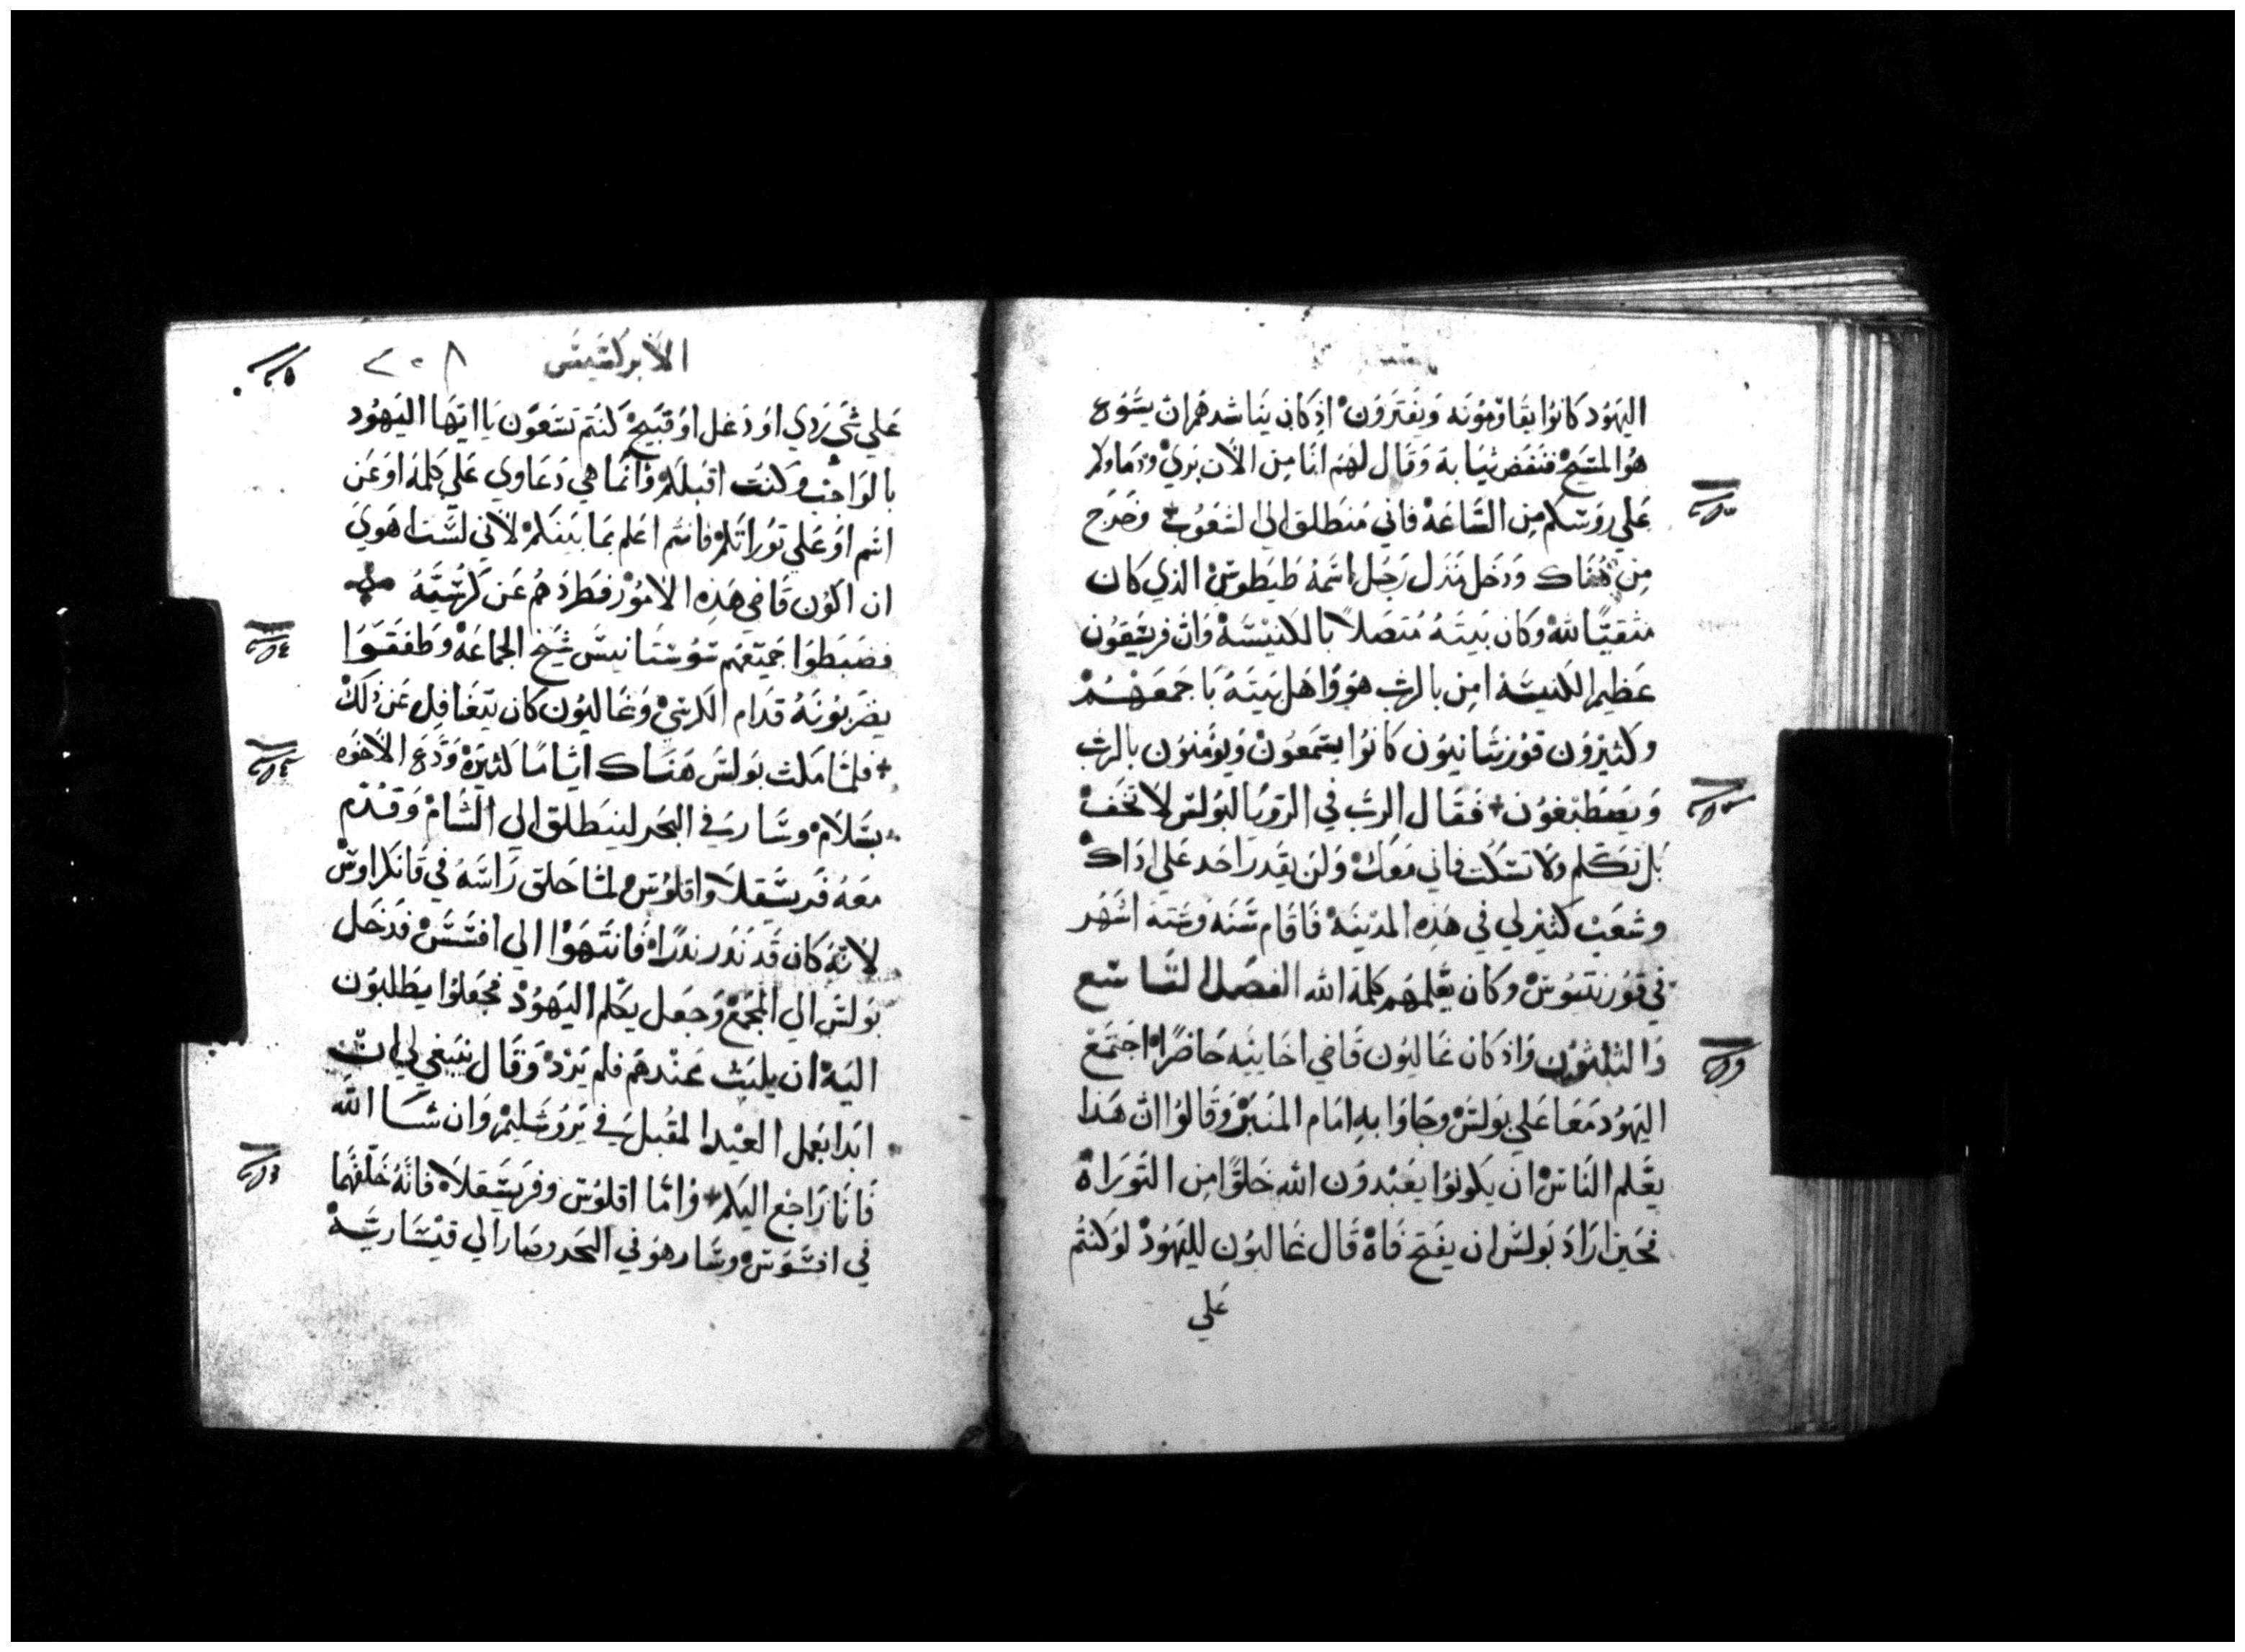 اليَهُود كانوُا يقَاوِمُونَه وَيفتَرَوُن اذِ كان يُناشدهُم ان يسَوُع
هوُ المسَيح فنَفض ثيَابهَ وَقال لهَم انَا مِن الاَن برَي ودَماوكم
عَلي روُسكم مِن السَّاعَهْ فاني مُنطَلق الي الشعَوُب + وَخرَج
مِن هُنَاك وَدخَل مَنزَل رَجُل اسَمهُ طيَطوسْ الذي كان
متقيًا لله وكَان بَيتَهُ مُتصَلاً بالكنيْسَهْ وَان فرسَقوُن
عَظيم الكنيسَة امِن بالرب هوُ وَاهَل بَيتَهُ باجمعَهُمْ
وكثيرْوُن قوُرنثانيوُن كانوُا يسَمعَوُنْ وَيومُنوُن بالرب
وَيصَطبَغوُن + فقَال الرب في الروَيا لبوَلس لاَ تخَفْ
بَل تكَلم وَلا تسَكت فاني مَعَكْ وَلن يقَدر احَد عَلي اذَاكْ
وشعَبْ كثيْر لي في هَذِه المديَنهَ فَاقَام سَنَه وسَتهَ اشهُر
في قوُرنتيُوسْ وكَان يعَلمهَم كلمَة الله الفصَل التاسَع
وَالثلثوُن وَاذ كان غَاليوُن قَاضي اخَاييَه حَاضرًا اجتَمَعْ
اليَهوُد مَعَا عَلي بَولسْ وجَاوَا بهِ امَام المنَبَرْ وَقَالوُا ان هَذا
يعَلم النَاسْ ان يكوُنوُا يعَبدوُن الله خَلوًا مِن التوَراهْ
فحَين ارَادَ بوَلسْ ان يفَتح فَاهْ قَال غاليوُن لليَهوُدْ لوَ كنتُم
عَلي
الاَبركسَيسَ
٢٠٨
عَلي شي رَدي اوَ دَغل اوَ قبَيحْ كَنُتم تسَعَوُن يَا ايهَا اليَهوُد
بالوَاجَب وكنَت اقبلكَم وَانمَا هي دَعَاوي عَلي كلمَهْ اوَ عَن
اسَم اوَ عَلي توَرَاتكمْ فانتم اعَلم بمَا بيَنكمْ لاَني لسَت اهَوي
ان اكوُن قَاضي هَذِه الاموُر فطَردَهُم عَن كَرسيَهُ
فضَبطوَا جميَعَهم سوُسَتانيسَ شيَخ الجماعَهْ وَطفقَوا
يضَربوُنَهُ قدَام الكرسيْ وَغاليوُن كان يتغَافل عَن ذلكَ
+ فلمَا مَكث بوَلسْ هنَاك ايامًا كثيرَهْ وَدَّع الاخوَه
بسَلاَمْ وسَار في البَحَر لينطَلق الي الشامْ وَقدُم
معَهُ فرَسَقلاَ واقلوُسْ لما حَلق رَاسَهُ في قَانكراوسْ
لانهُ كان قَد نَذر نذرَاه فَانتَهوَا الي افسَسْ فدَخل
بَولسَ الي المجمَعْ وَجعَل يكَلم اليَهوُدْ فجعَلوُا يطَلبَوُن
اليَهْ ان يلبَث عَندهَم فلم يَردْ وَقال ينبَغي لي ان
ابَدا بعَمل العَيْد المقبل في يَروُشليم وَان شَا الله
فَانَا رَاجَع اليَكم + وَامّا اقلوُسَ وفرَسَقلاَه فانهُ خلفَهُما
في افسَوُسْ وسَار هوُ في البَحَر وصَار الي قيَسَاريَهْ